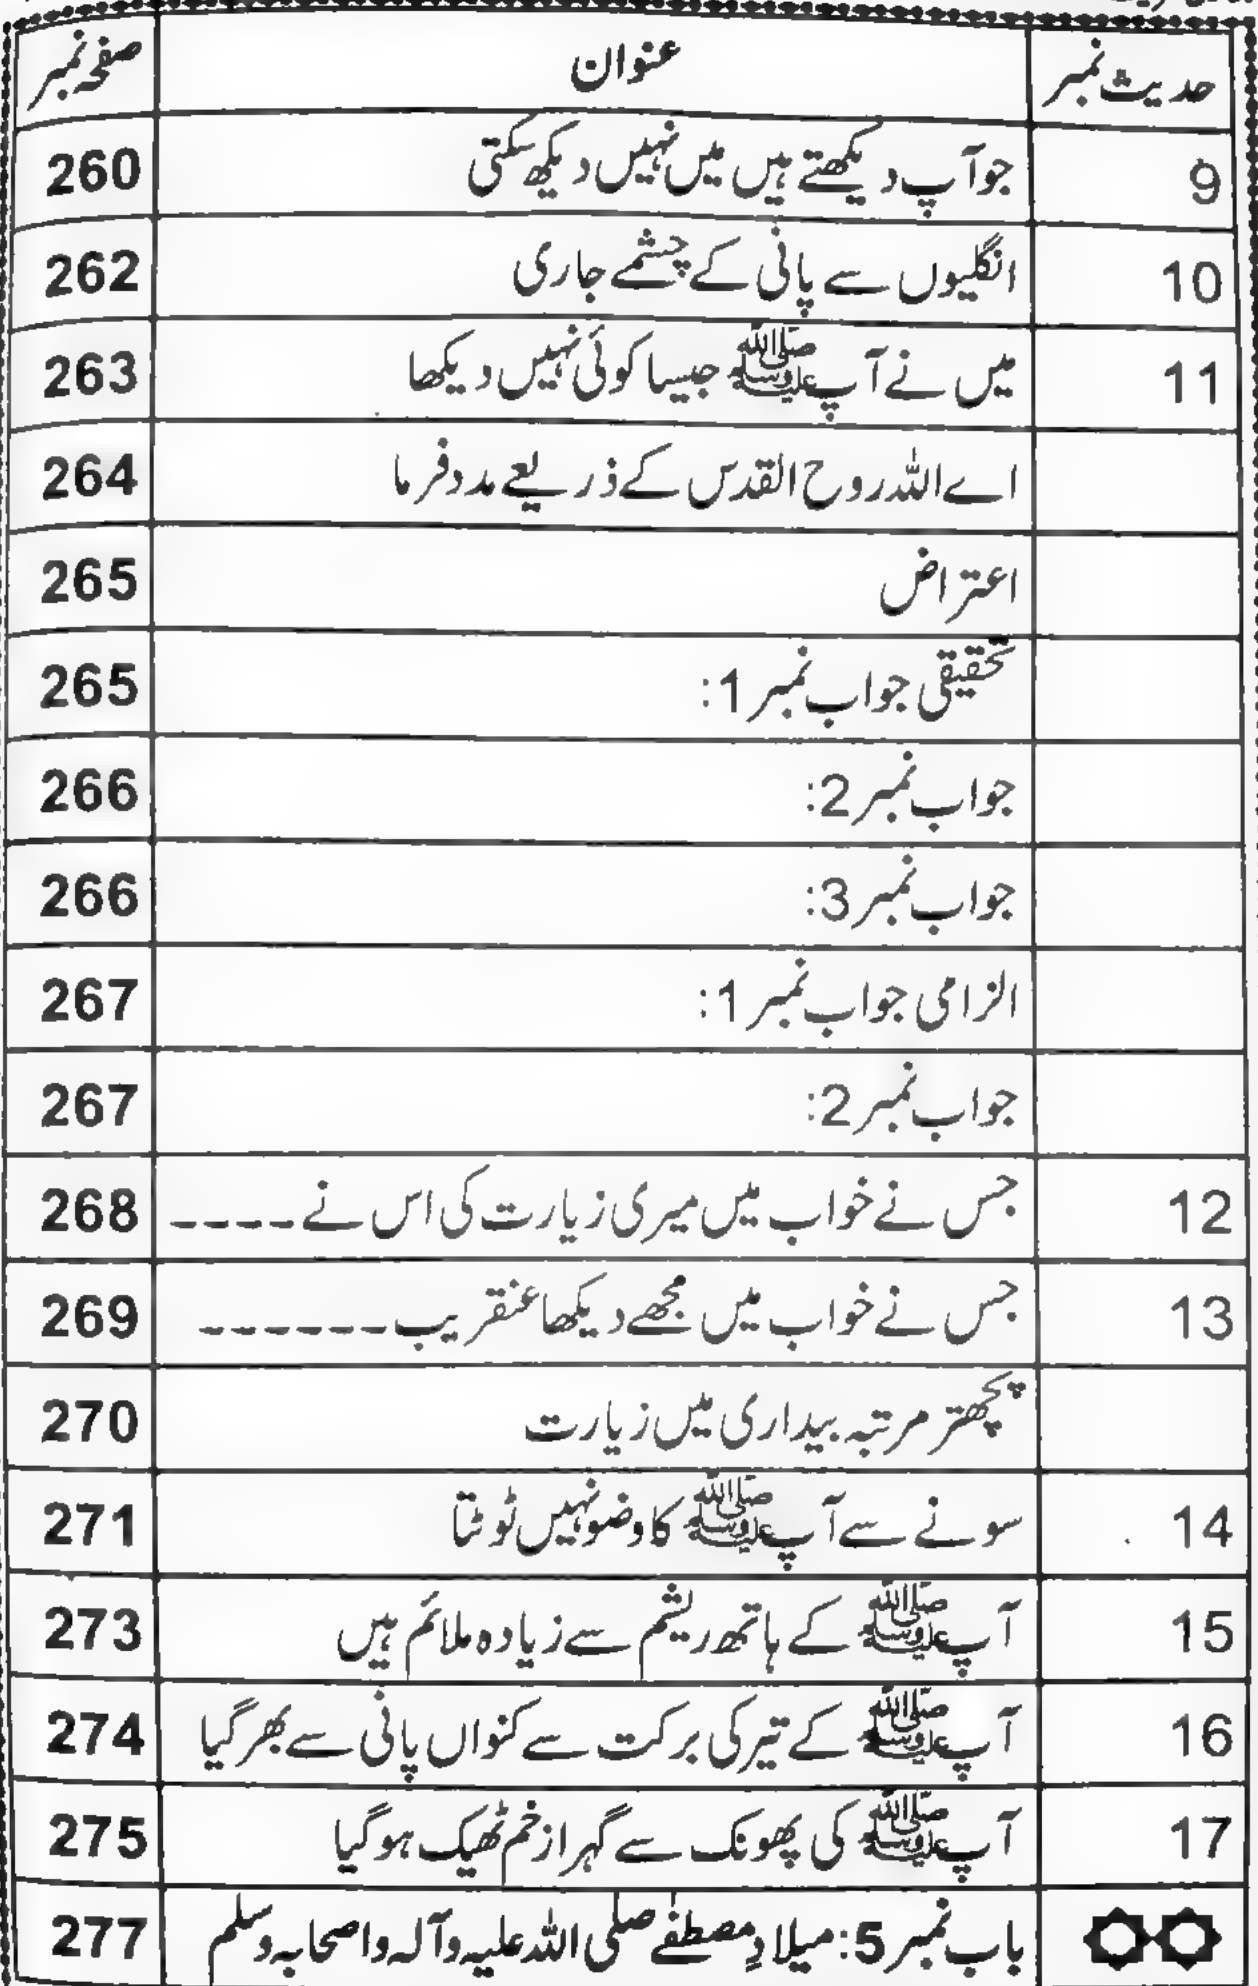 حدیث نمبر عنوان صفحہ نمبر
9 جو آپ دیکھتے ہیں میں نہیں دیکھ سکتی 260
10 انگلیوں سے پانی کے چشمے جاری 262
11 میں نے آپ ﷺ جیسا کوئی نہیں دیکھا 263
اے اللہ روح القدس کے ذریعے مدد فرما 264
اعتراض 265
تحقیقی جواب نمبر 1: 265
جواب نمبر 2: 266
جواب نمبر 3: 266
الزامی جواب نمبر 1: 267
جواب نمبر 2: 267
12 جس نے خواب میں میری زیارت کی اس نے ---- 268
13 جس نے خواب میں مجھے دیکھا عنقریب ------ 269
پچھتر مرتبہ بیداری میں زیارت 270
14 سونے سے آپ ﷺ کا وضو نہیں ٹوٹتا 271
15 آپ ﷺ کے ہاتھ ریشم سے زیادہ ملائم ہیں 273
16 آپ ﷺ کے تیر کی برکت سے کنواں پانی سے بھر گیا 274
17 آپ ﷺ کی پھونک سے گہرا زخم ٹھیک ہو گیا 275
باب نمبر 5: میلادِ مصطفٰے صلی اللہ علیہ وآلہ واصحابہ وسلم 277